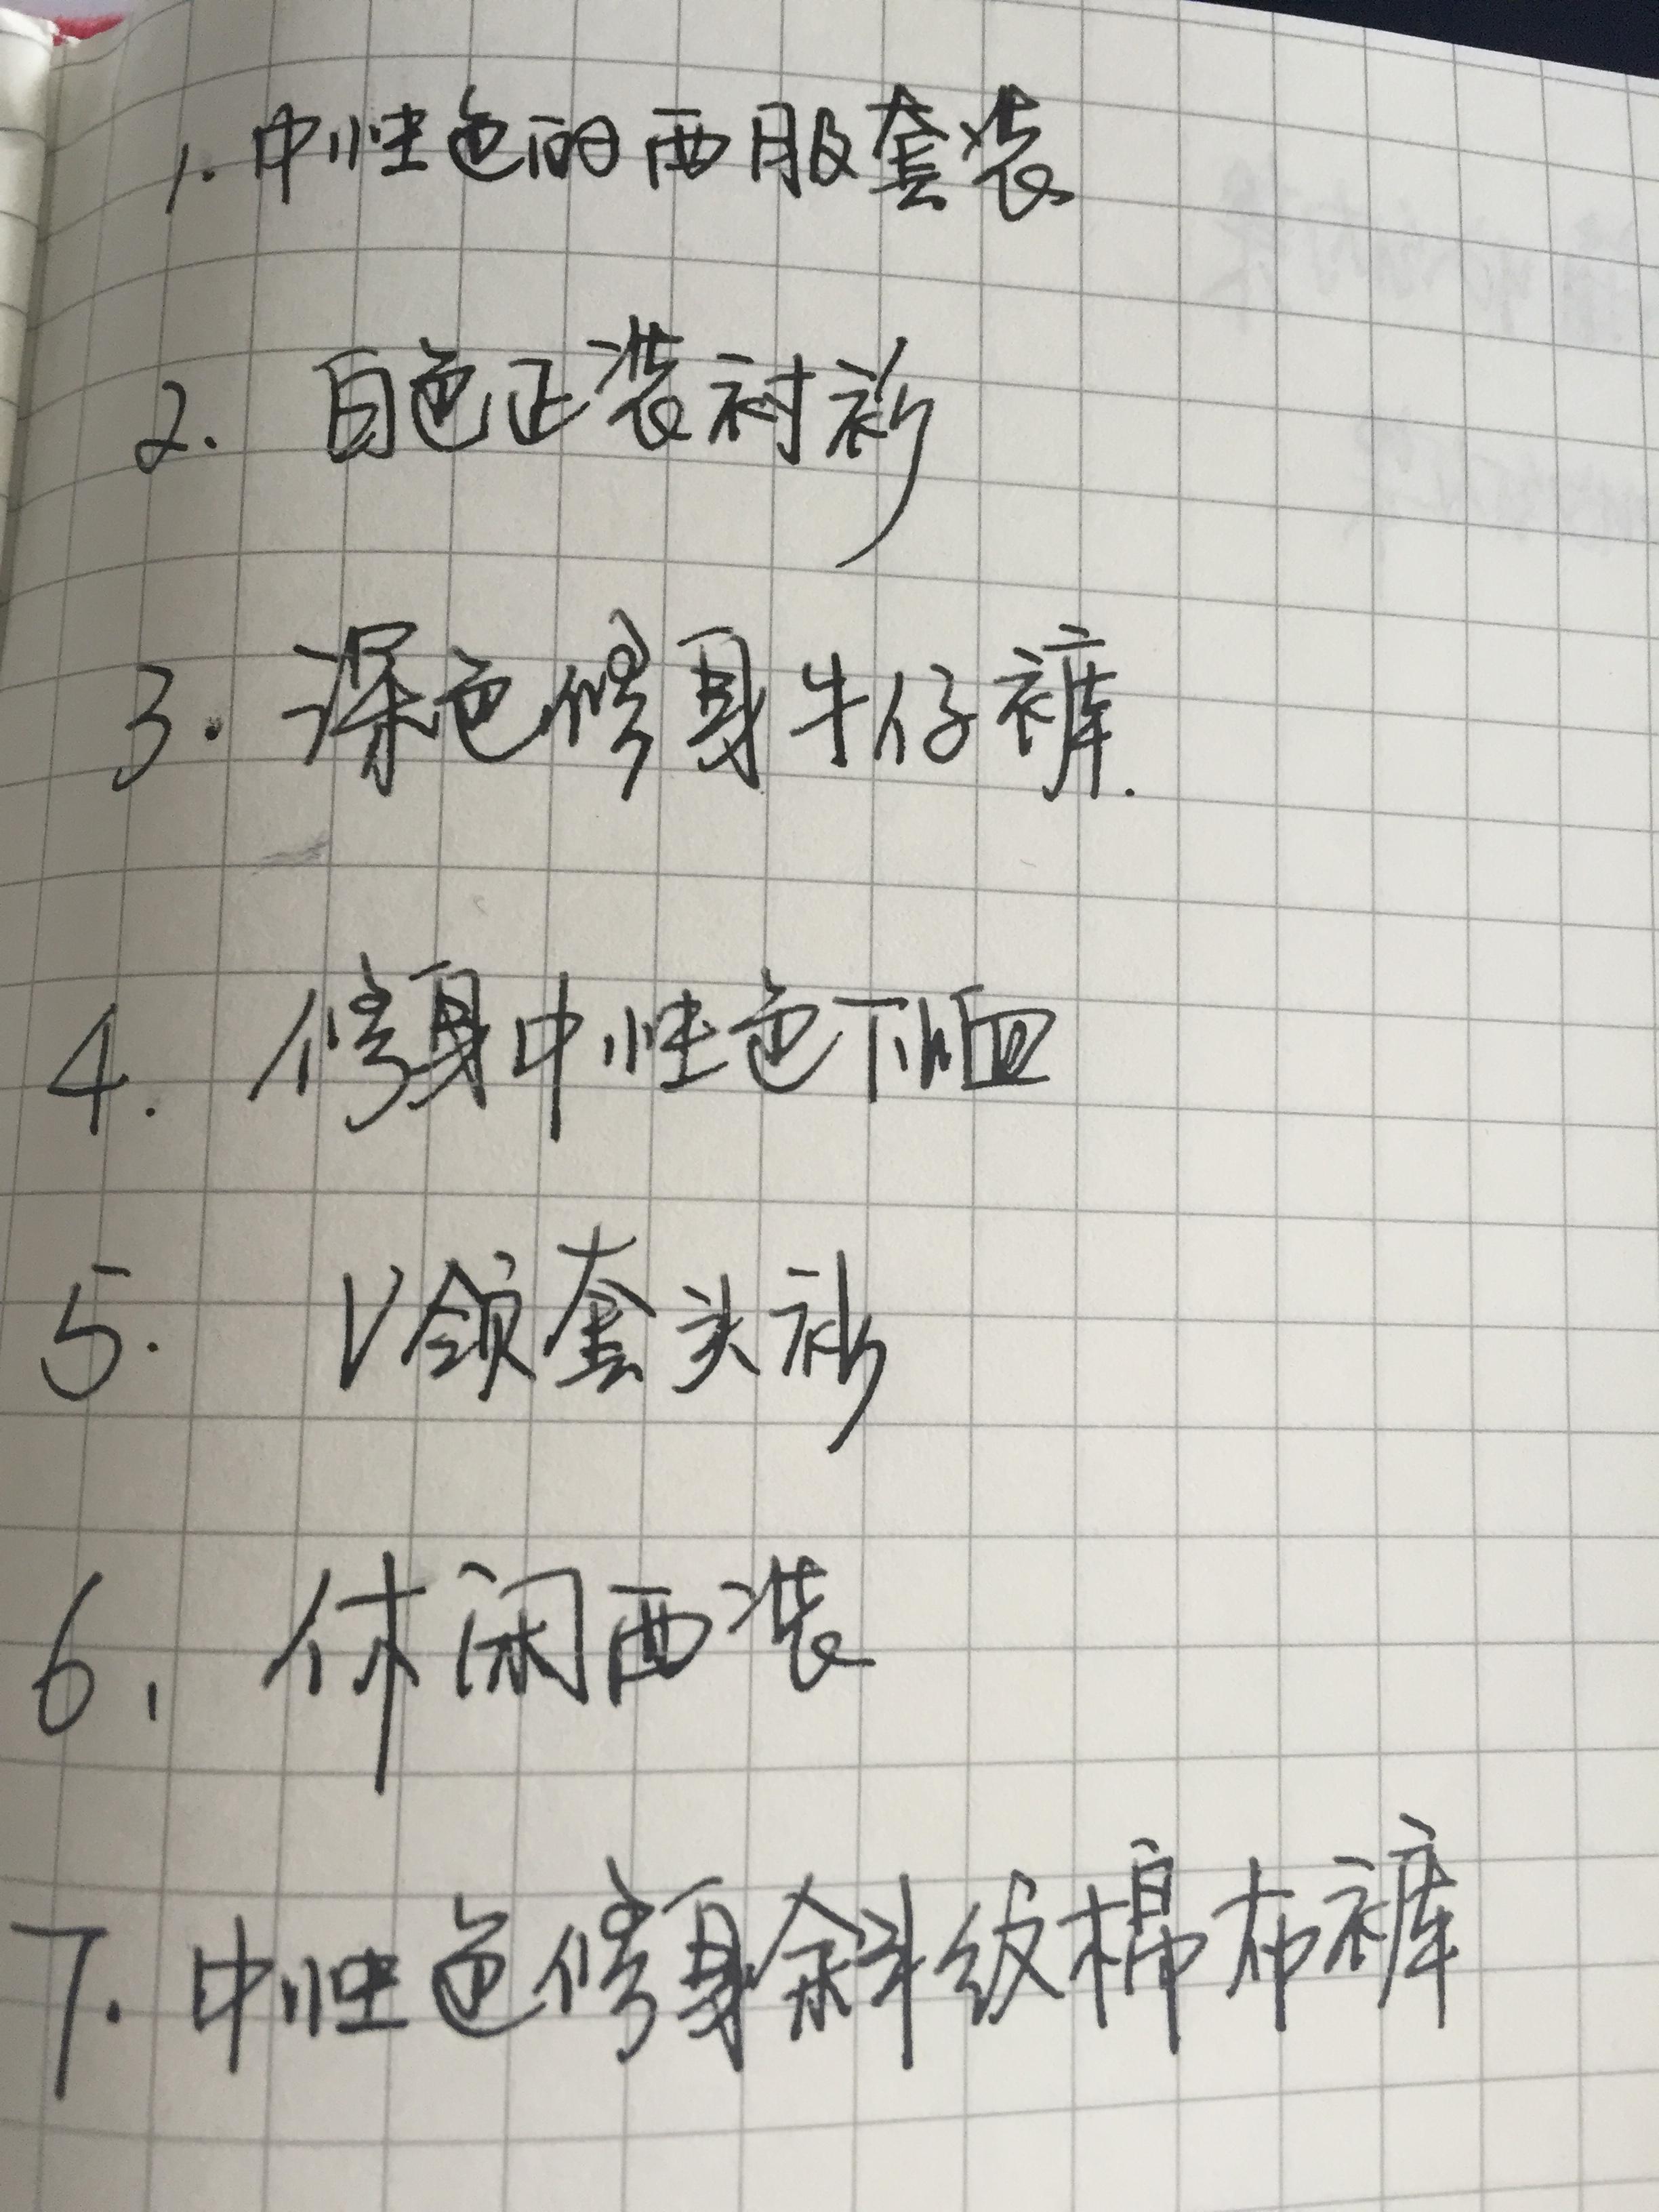 1. 中性色的西服套装
2. 白色正装衬衫
3. 深色修身牛仔裤.
4. 修身中性色T恤
5. V领套头衫
6. 休闲西装
7. 中性色修身斜纹棉布裤